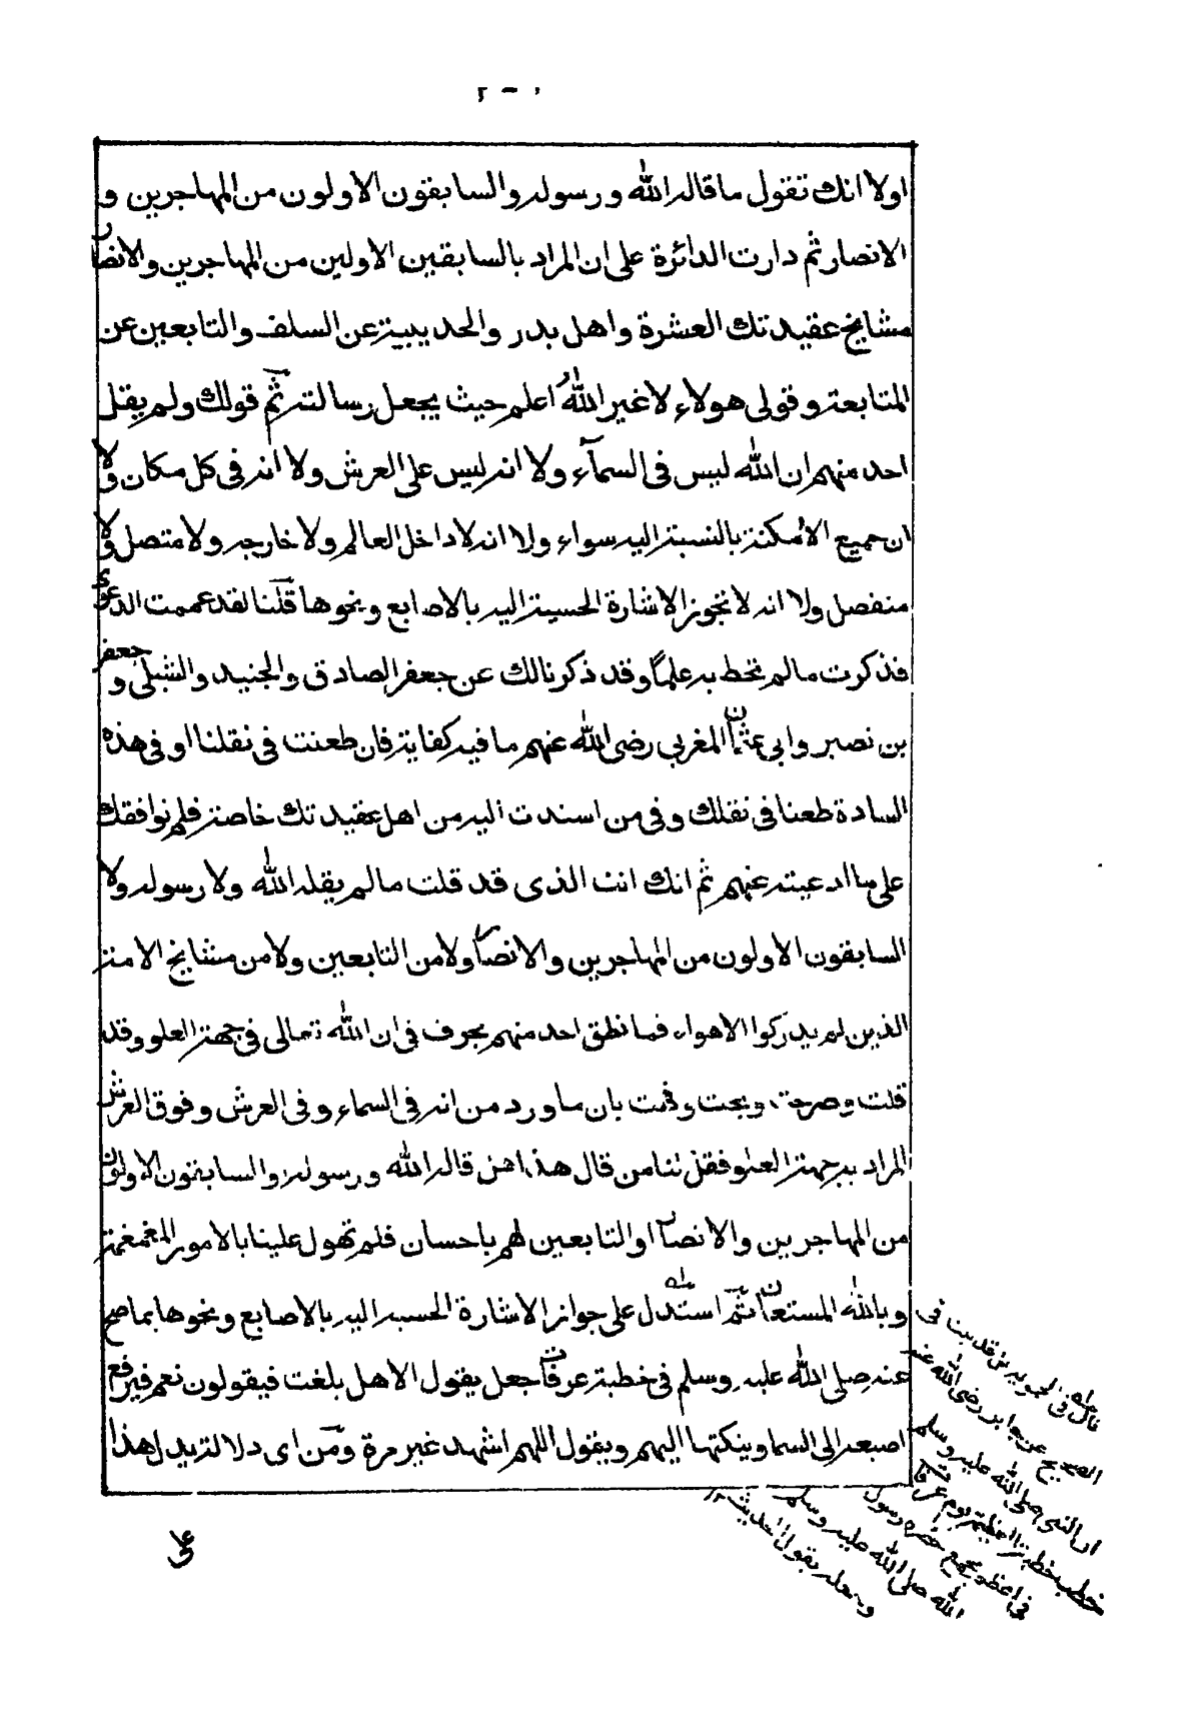 اولا انك تقول ما قاله الله ورسوله والسابقون الاولون من المهاجرين و
الانصار ثم دارت الدائرة على ان المراد بالسابقين الاولين من المهاجرين والانصار
مشايخ عقيدتك العشرة واهل بدر والحديبية عن السلف والتابعين عن
المتابعة وقولى هولاء لا غير الله اعلم حيث يجعل رسالته ثم قولك ولم يقل
احد منهم ان الله ليس فى السمآء ولا انه ليس على العرش ولا انه فى كل مكان ولا
ان جميع الامكنة بالنسبة اليه سواء ولا انه لا داخل العالم ولا خارجه ولا متصل ولا
منفصل ولا انه لا تجوز الاشارة الحسية اليه بالاصابع ونحوها قلنا لقد عممت الدعوى
فذكرت مالم تحط به علمًا وقد ذكرنا لك عن جعفر الصادق والجنيد والشبلى وجعفر
بن نصير وابى عثمان المغربى رضى الله عنهم ما فيه كفاية فان طعنت فى نقلنا او فى هذه
السادة طعنا فى نقلك وفى من اسندت اليه من اهل عقيدتك خاصة فلم نوافقك
على ما ادعيته عنهم ثم انك انت الذى قد قلت مالم يقله الله ولا رسوله ولا
السابقون الاولون من المهاجرين والانصار ولا من التابعين ولا من مشايخ الامة
الذين لم يدركوا الاهواء فما نطق احد منهم بحرف فى ان الله تعالى فى جهة العلو وقد
قلت وصرحت وبحت وفهمت بان ما ورد من انه فى السماء وفى العرش وفوق العرش
المراد به جهة العلو فقل لنا من قال هذا اهل قاله الله ورسوله والسابقون الاولون
من المهاجرين والانصار او التابعين لهم باحسان فلم تهول علينا بالامور المغمغمة
وبالله المستعان ثم استدل على جواز الاشارة الحسيه اليه بالاصابع ونحوها بما صح
عنه صلى الله عليه وسلم فى خطبة عرفات جعل يقول الا هل بلغت فيقولون نعم فيرفع
اصبعه الى السما وينكتها اليهم ويقول اللهم اشهد غير مرة ومن اى دلالة يدل هذا
على
قال فى الجوبه قد ثبت فى
الصحيح عن جابر رضى الله عنه
ان النبى صلى الله عليه وسلم
خطب خطبة العظيم يوم عرفات
فى اعظم جمع حضره رسول
الله صلى الله عليه وسلم
وجعل يقول الحديث ١٢